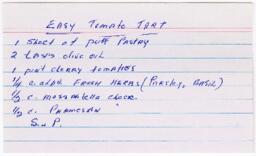 Easy Tomato Tart
1 sheet of puff pastry
2 TABLS olive oil
1 pint cherry tomatoes
1/4 c. FRESH HERBS (Parsley, BASIL)
1/2 c. mozzarella
1/2 c. Parmesan
S & P.